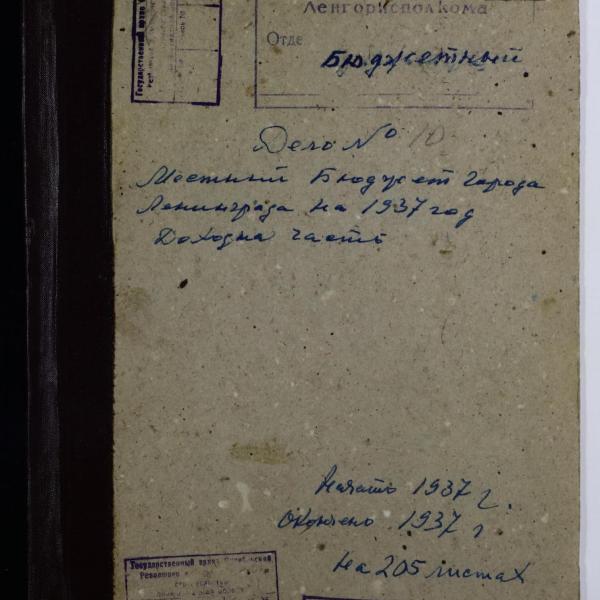 Ленгорисполкома
Отде
Бюджетный
Дело № 10
Местный Бюджет города
Ленинграда на 1937 год
Доходна часть
Начато 1937 г.
Окончено 1937 г
На 205 листах
Государственный архив Октябрьской
Революции и